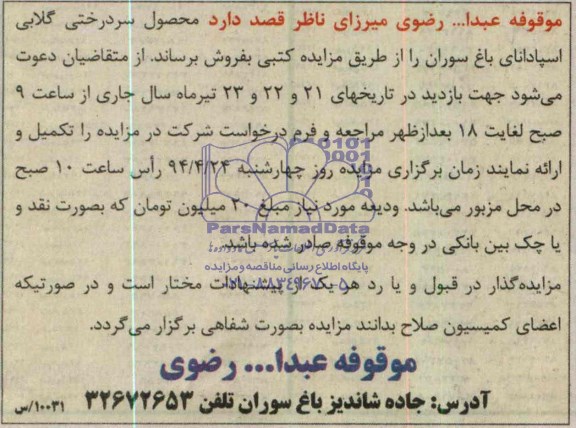 موقوفه عبدا... رضوی میرزای ناظر قصد دارد محصول سردرختی گلابی
اسپادانای باغ سوران را از طریق مزایده کتبی بفروش برساند. از متقاضیان دعوت
می‌شود جهت بازدید در تاریخهای ۲۱ و ۲۲ و ۲۳ تیرماه سال جاری از ساعت ۹
صبح لغایت ۱۸ بعدازظهر مراجعه و فرم درخواست شرکت در مزایده را تکمیل و
ارائه نمایند زمان برگزاری مزایده روز چهارشنبه ۹۴/۴/۲۴ رأس ساعت ۱۰ صبح
در محل مزبور می‌باشد. ودیعه مورد نیاز مبلغ ۲۰ میلیون تومان که بصورت نقد و
ParsNamadData
یا چک بین بانکی در وجه موقوفه صادر شده باشد.
پایگاه اطلاع رسانی مناقصه و مزایده
مزایده‌گذار در قبول و یا رد هر یک از پیشنهادات مختار است و در صورتیکه
اعضای کمیسیون صلاح بدانند مزایده بصورت شفاهی برگزار می‌گردد.
موقوفه عبدا... رضوی
آدرس: جاده شاندیز باغ سوران تلفن ۳۲۶۷۲۶۵۳
۱۰۰۳۱/س